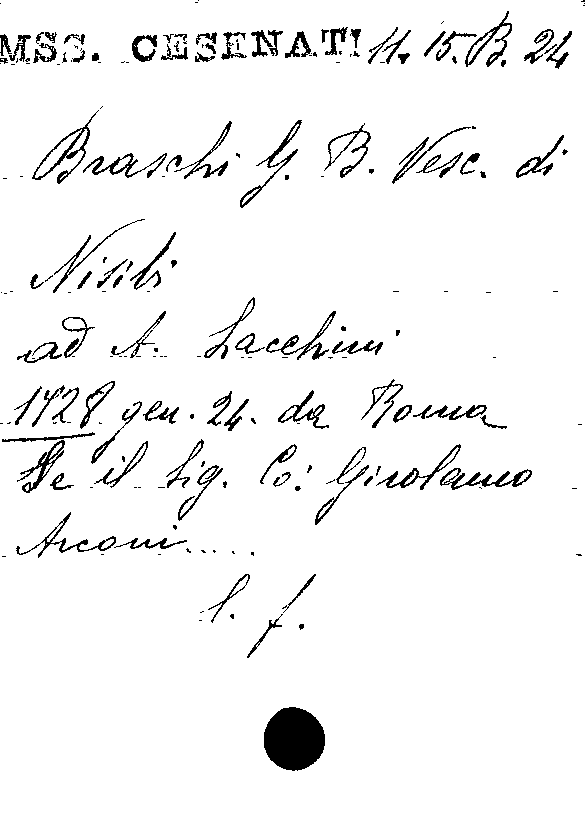 MSS. CESENATI 11. 15. B. 24
Braschi G. B. Vesc. di
Nisibi
ad A. Lacchini
1728 gen. 24. da Roma
Se il Sig. Co: Girolamo
Arconi.....
l. f.